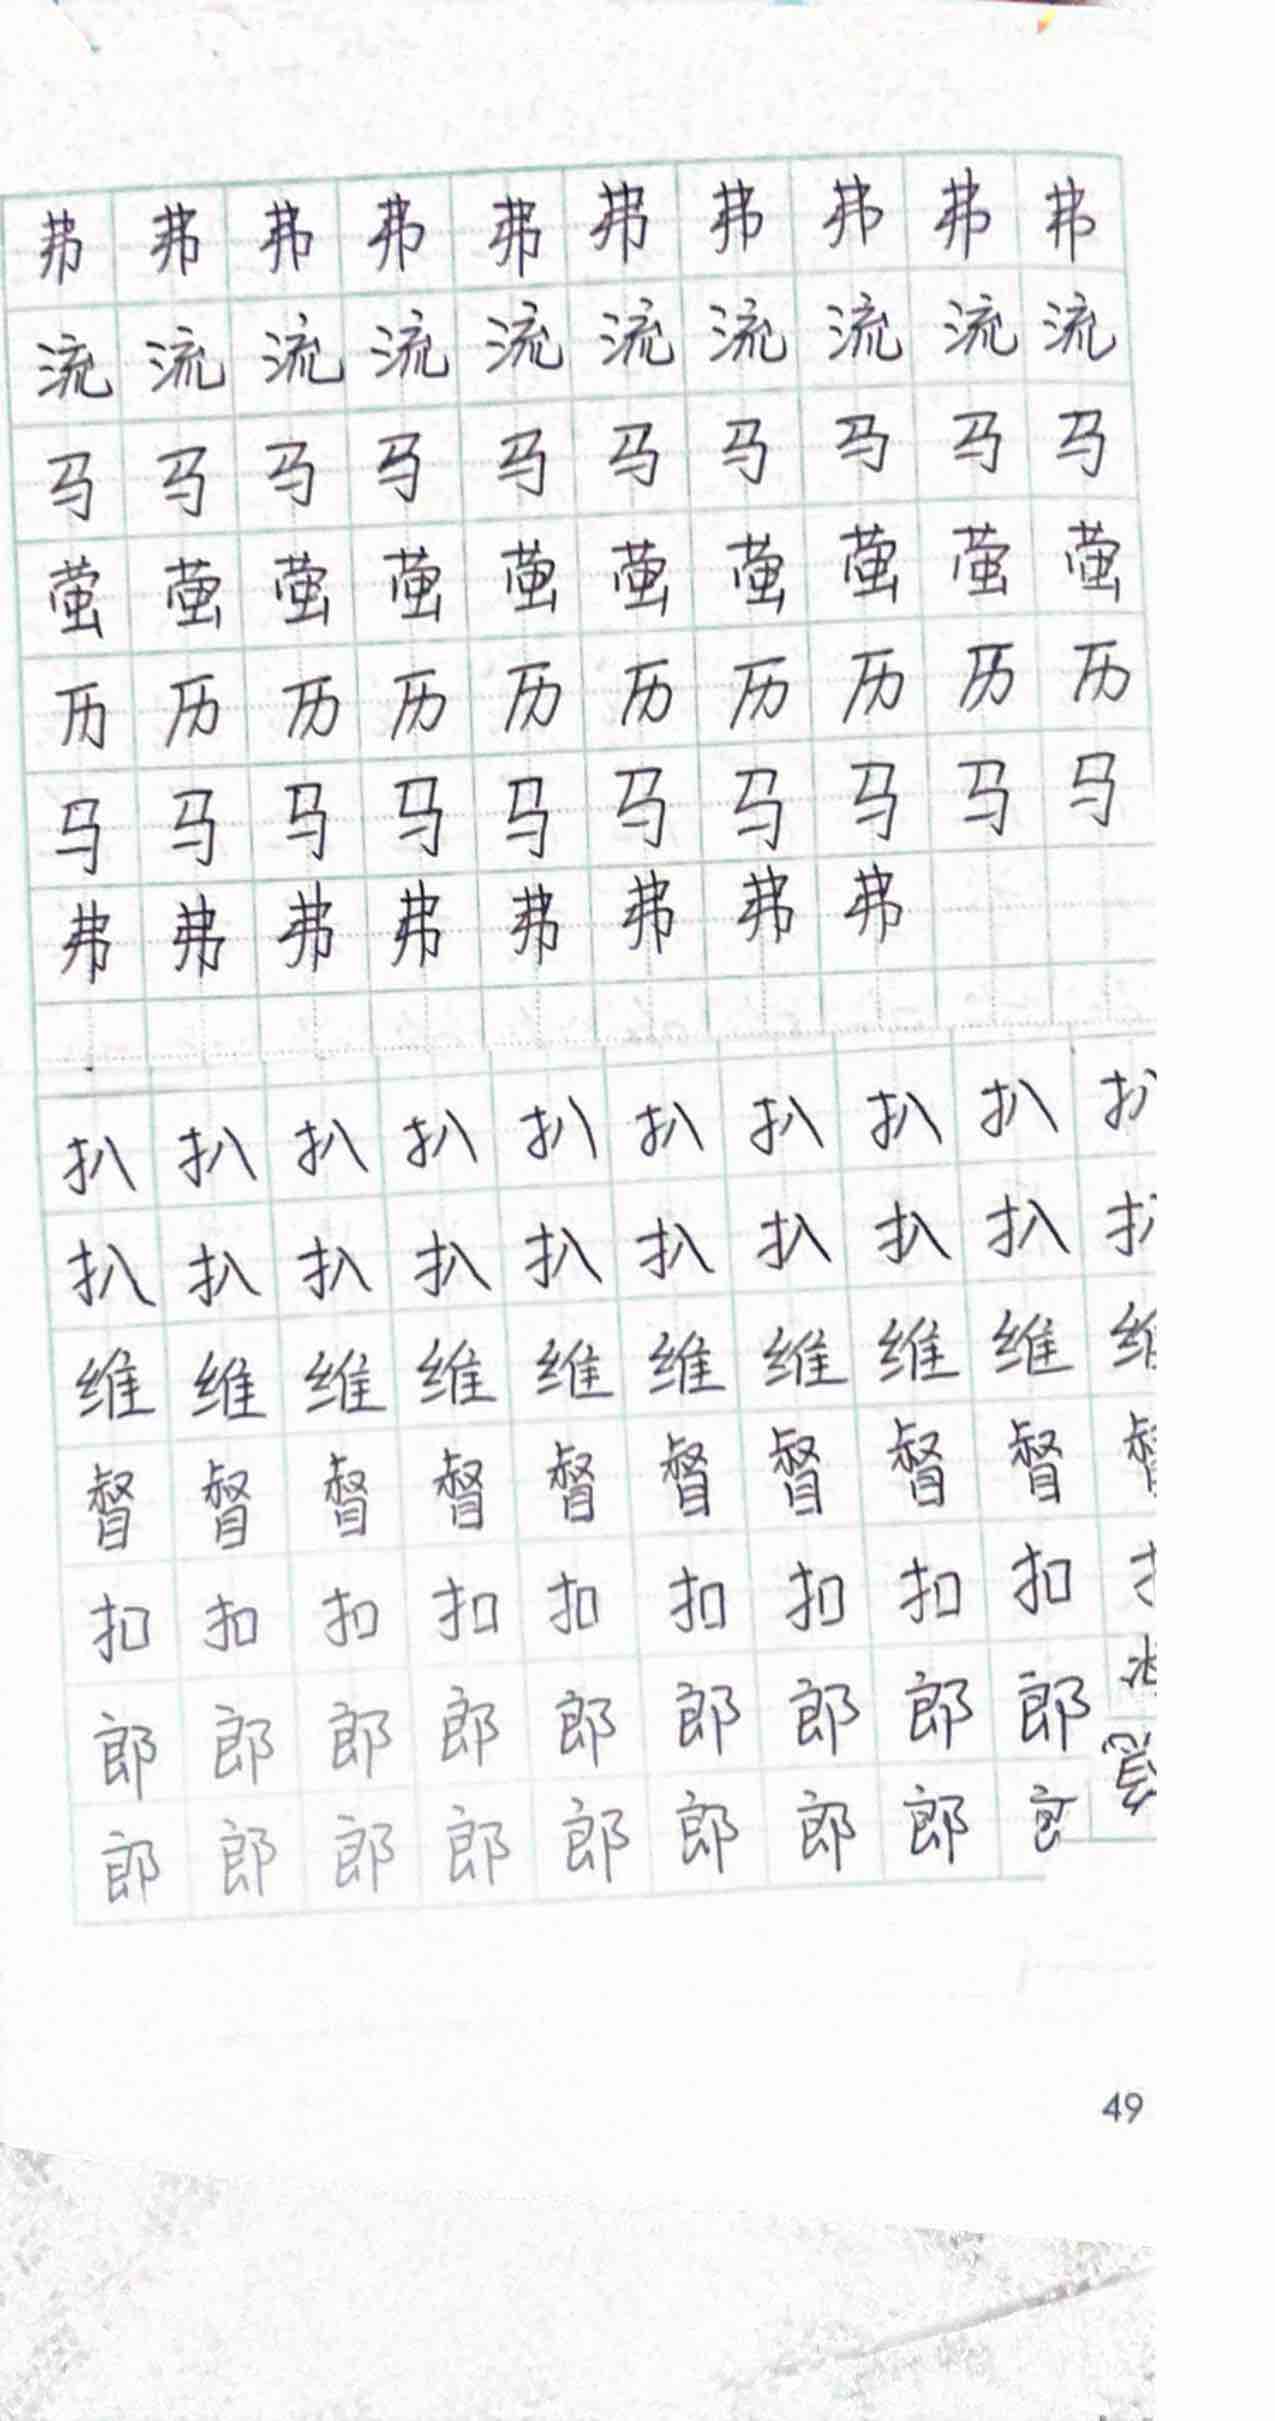 弗弗弗弗弗弗弗弗弗弗
流流流流流流流流流流
马马马马马马马马马马
萤萤萤萤萤萤萤萤萤萤
历历历历历历历历历历
马马马马马马马马马马
弗弗弗弗弗弗弗弗
扒扒扒扒扒扒扒扒扒
扒扒扒扒扒扒扒扒扒
维维维维维维维维维
督督督督督督督督督
扣扣扣扣扣扣扣扣扣
郎郎郎郎郎郎郎郎郎
郎郎郎郎郎郎郎郎
49